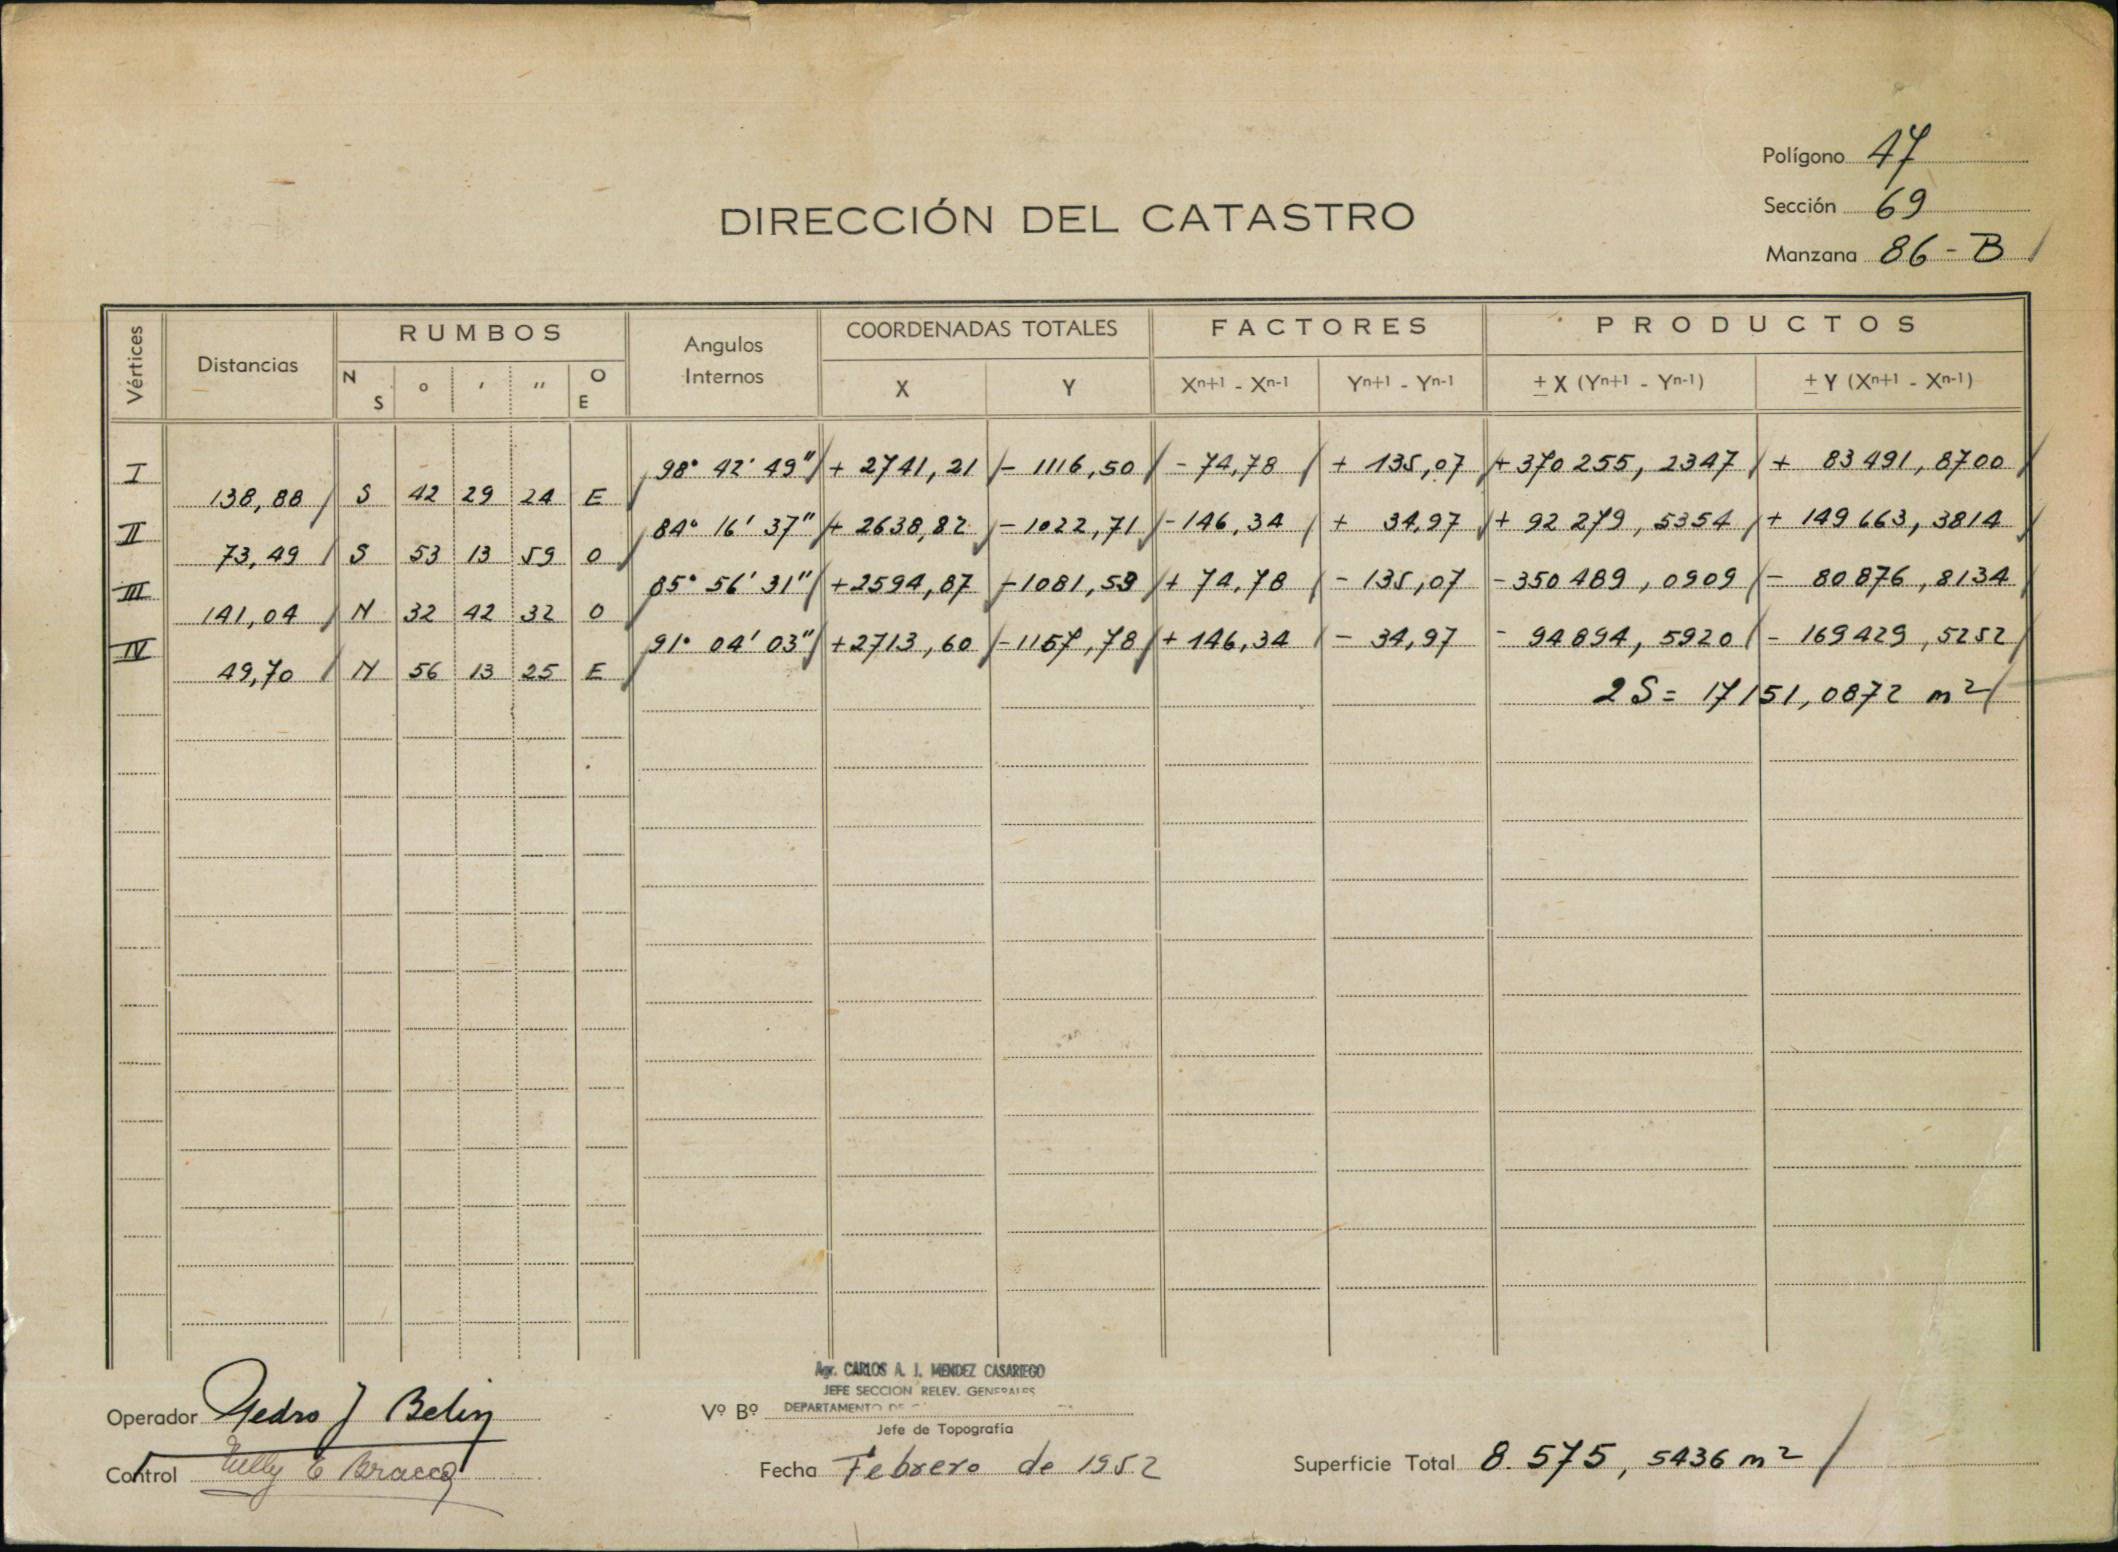 Polígono 47
Sección 69
Manzana 86-B
DIRECCIÓN DEL CATASTRO
Vértices Distancias RUMBOS Angulos Internos COORDENADAS TOTALES FACTORES PRODUCTOS
N S ° ' " O E X Y Xn+1 - Xn-1 Yn+1 - Yn-1 ± X (Yn+1 - Yn-1) ± Y (Xn+1 - Xn-1)
I 98° 42' 49" + 2741,21 - 1116,50 - 74,78 + 135,07 + 370 255, 2347 + 83 491, 8700
138,88 S 42 29 24 E
II 84° 16' 37" + 2638,82 - 1022,71 - 146,34 + 34,97 + 92 279, 5354 + 149 663, 3814
73,49 S 53 13 59 O
III 85° 56' 31" + 2594,87 - 1081,53 + 74,78 - 135,07 - 350 489, 0909 - 80 876, 8134
141,04 N 32 42 32 O
IV 91° 04' 03" + 2713,60 - 1157,78 + 146,34 - 34,97 - 94 894, 5920 - 169 429, 5252
49,70 N 56 13 25 E
2 S = 17151,0872 m2
Agr. CARLOS A. J. MENDEZ CASARIEGO
JEFE SECCION RELEV. GENERALES
Operador Pedro J Belin
Vº Bº DEPARTAMENTO DE
Jefe de Topografía
Control Nelly E Bracco
Fecha Febrero de 1952
Superficie Total 8.575, 5436 m2